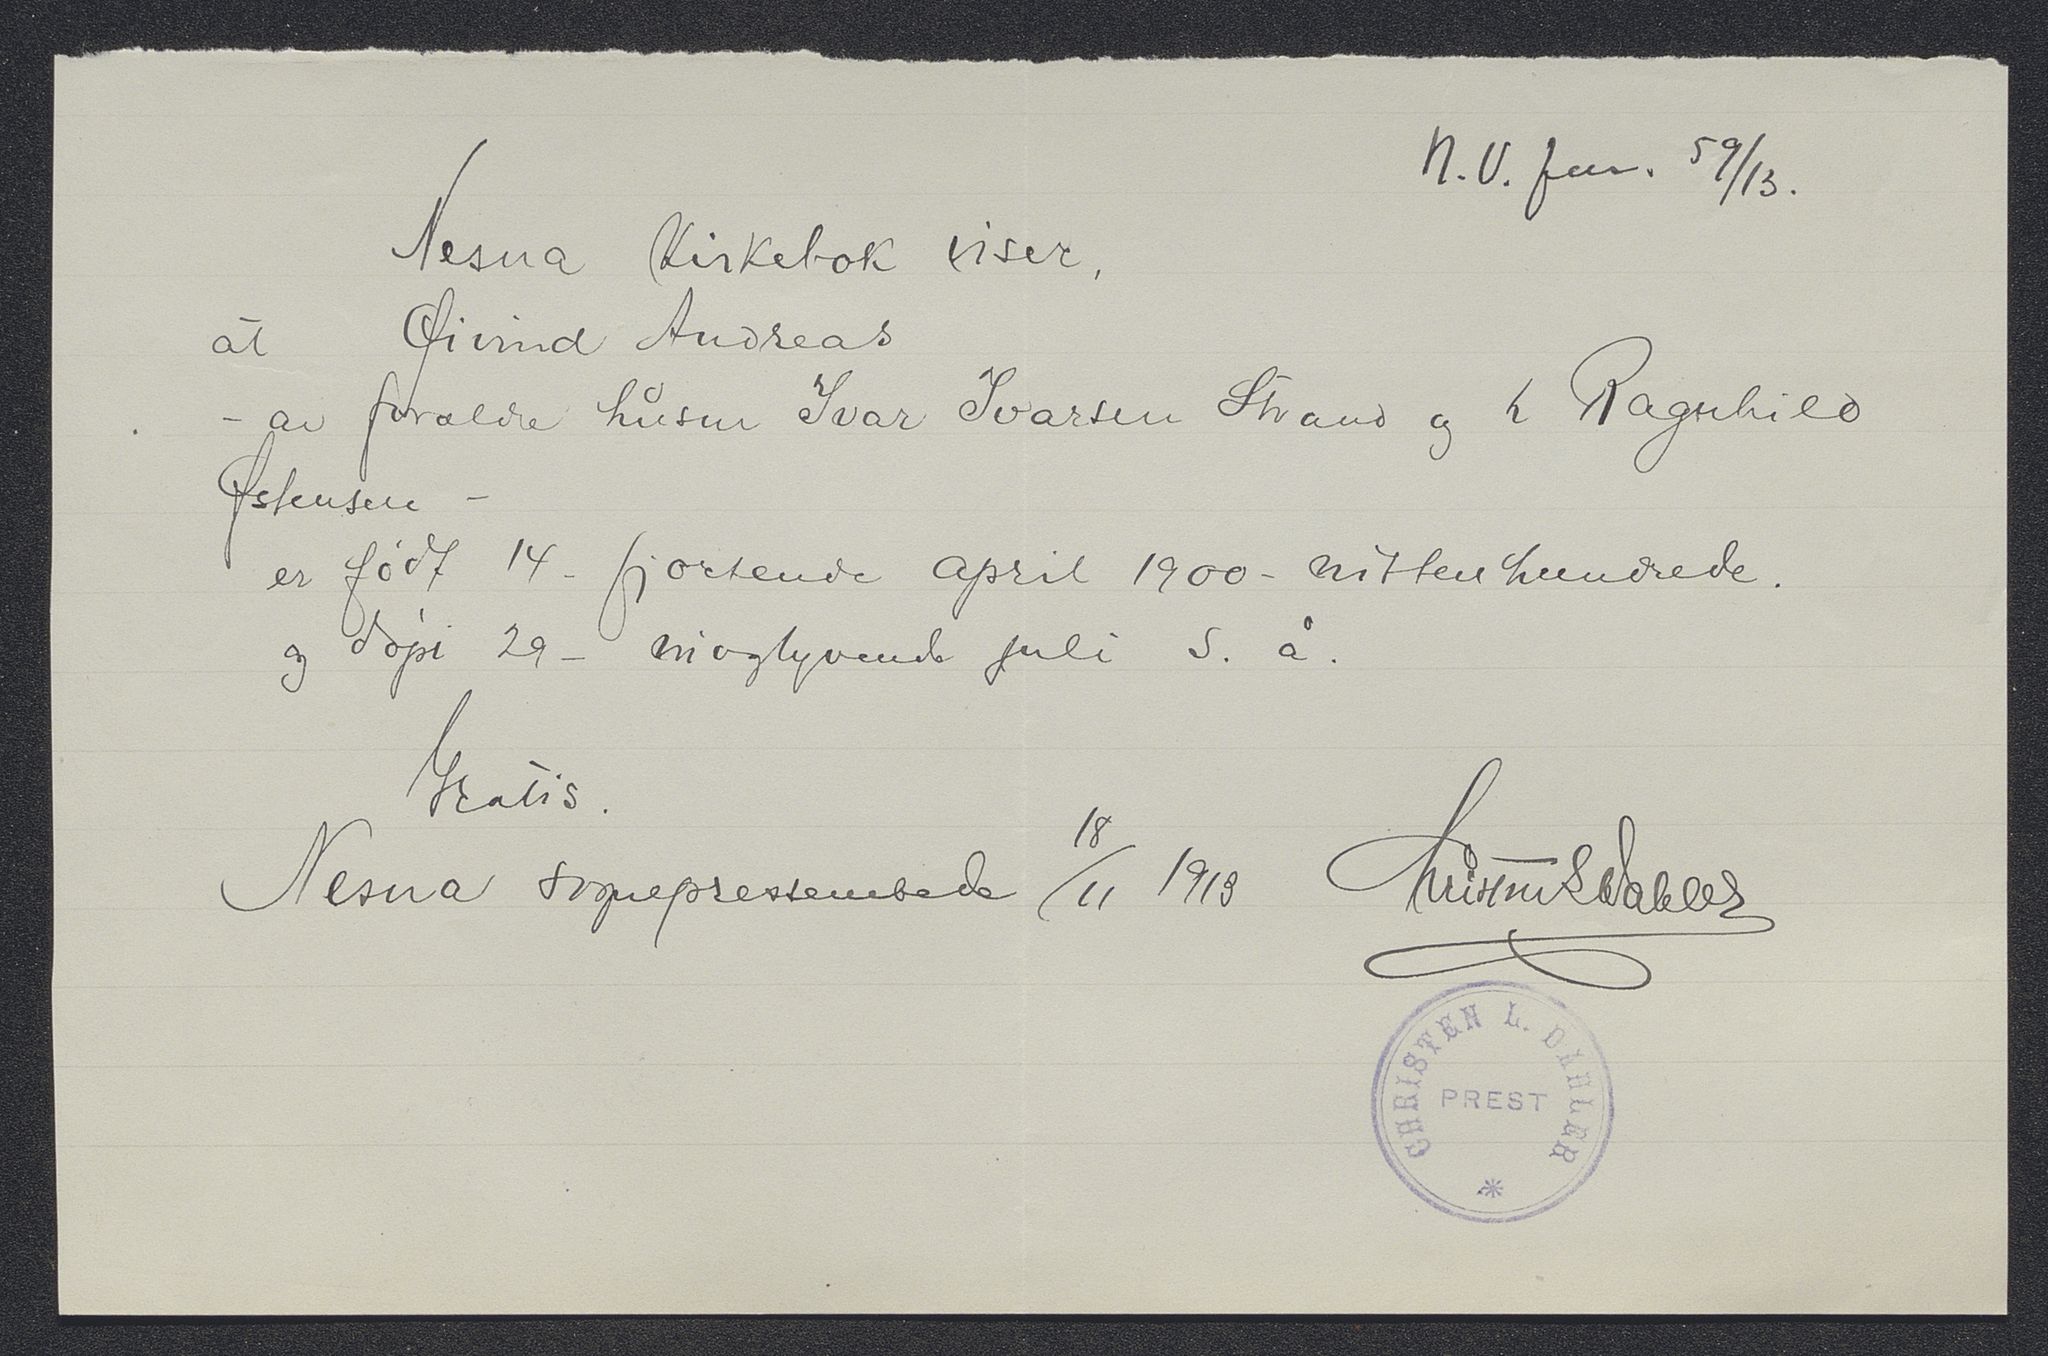 N. V. jur. 59/13.
Nesna Kirkebok viser,
at Øivind Andreas
- av forældre husm Ivar Ivarsen Strand og h Ragnhild
Østensen -
er født 14 - fjortende april 1900 - nittenhundrede.
og døpt 29 - niogtyvende juli s. å.
Gratis.
Nesna sogneprestembede 18/11 1913 Christen L Dahler
CHRISTEN L. DAHLER
PREST